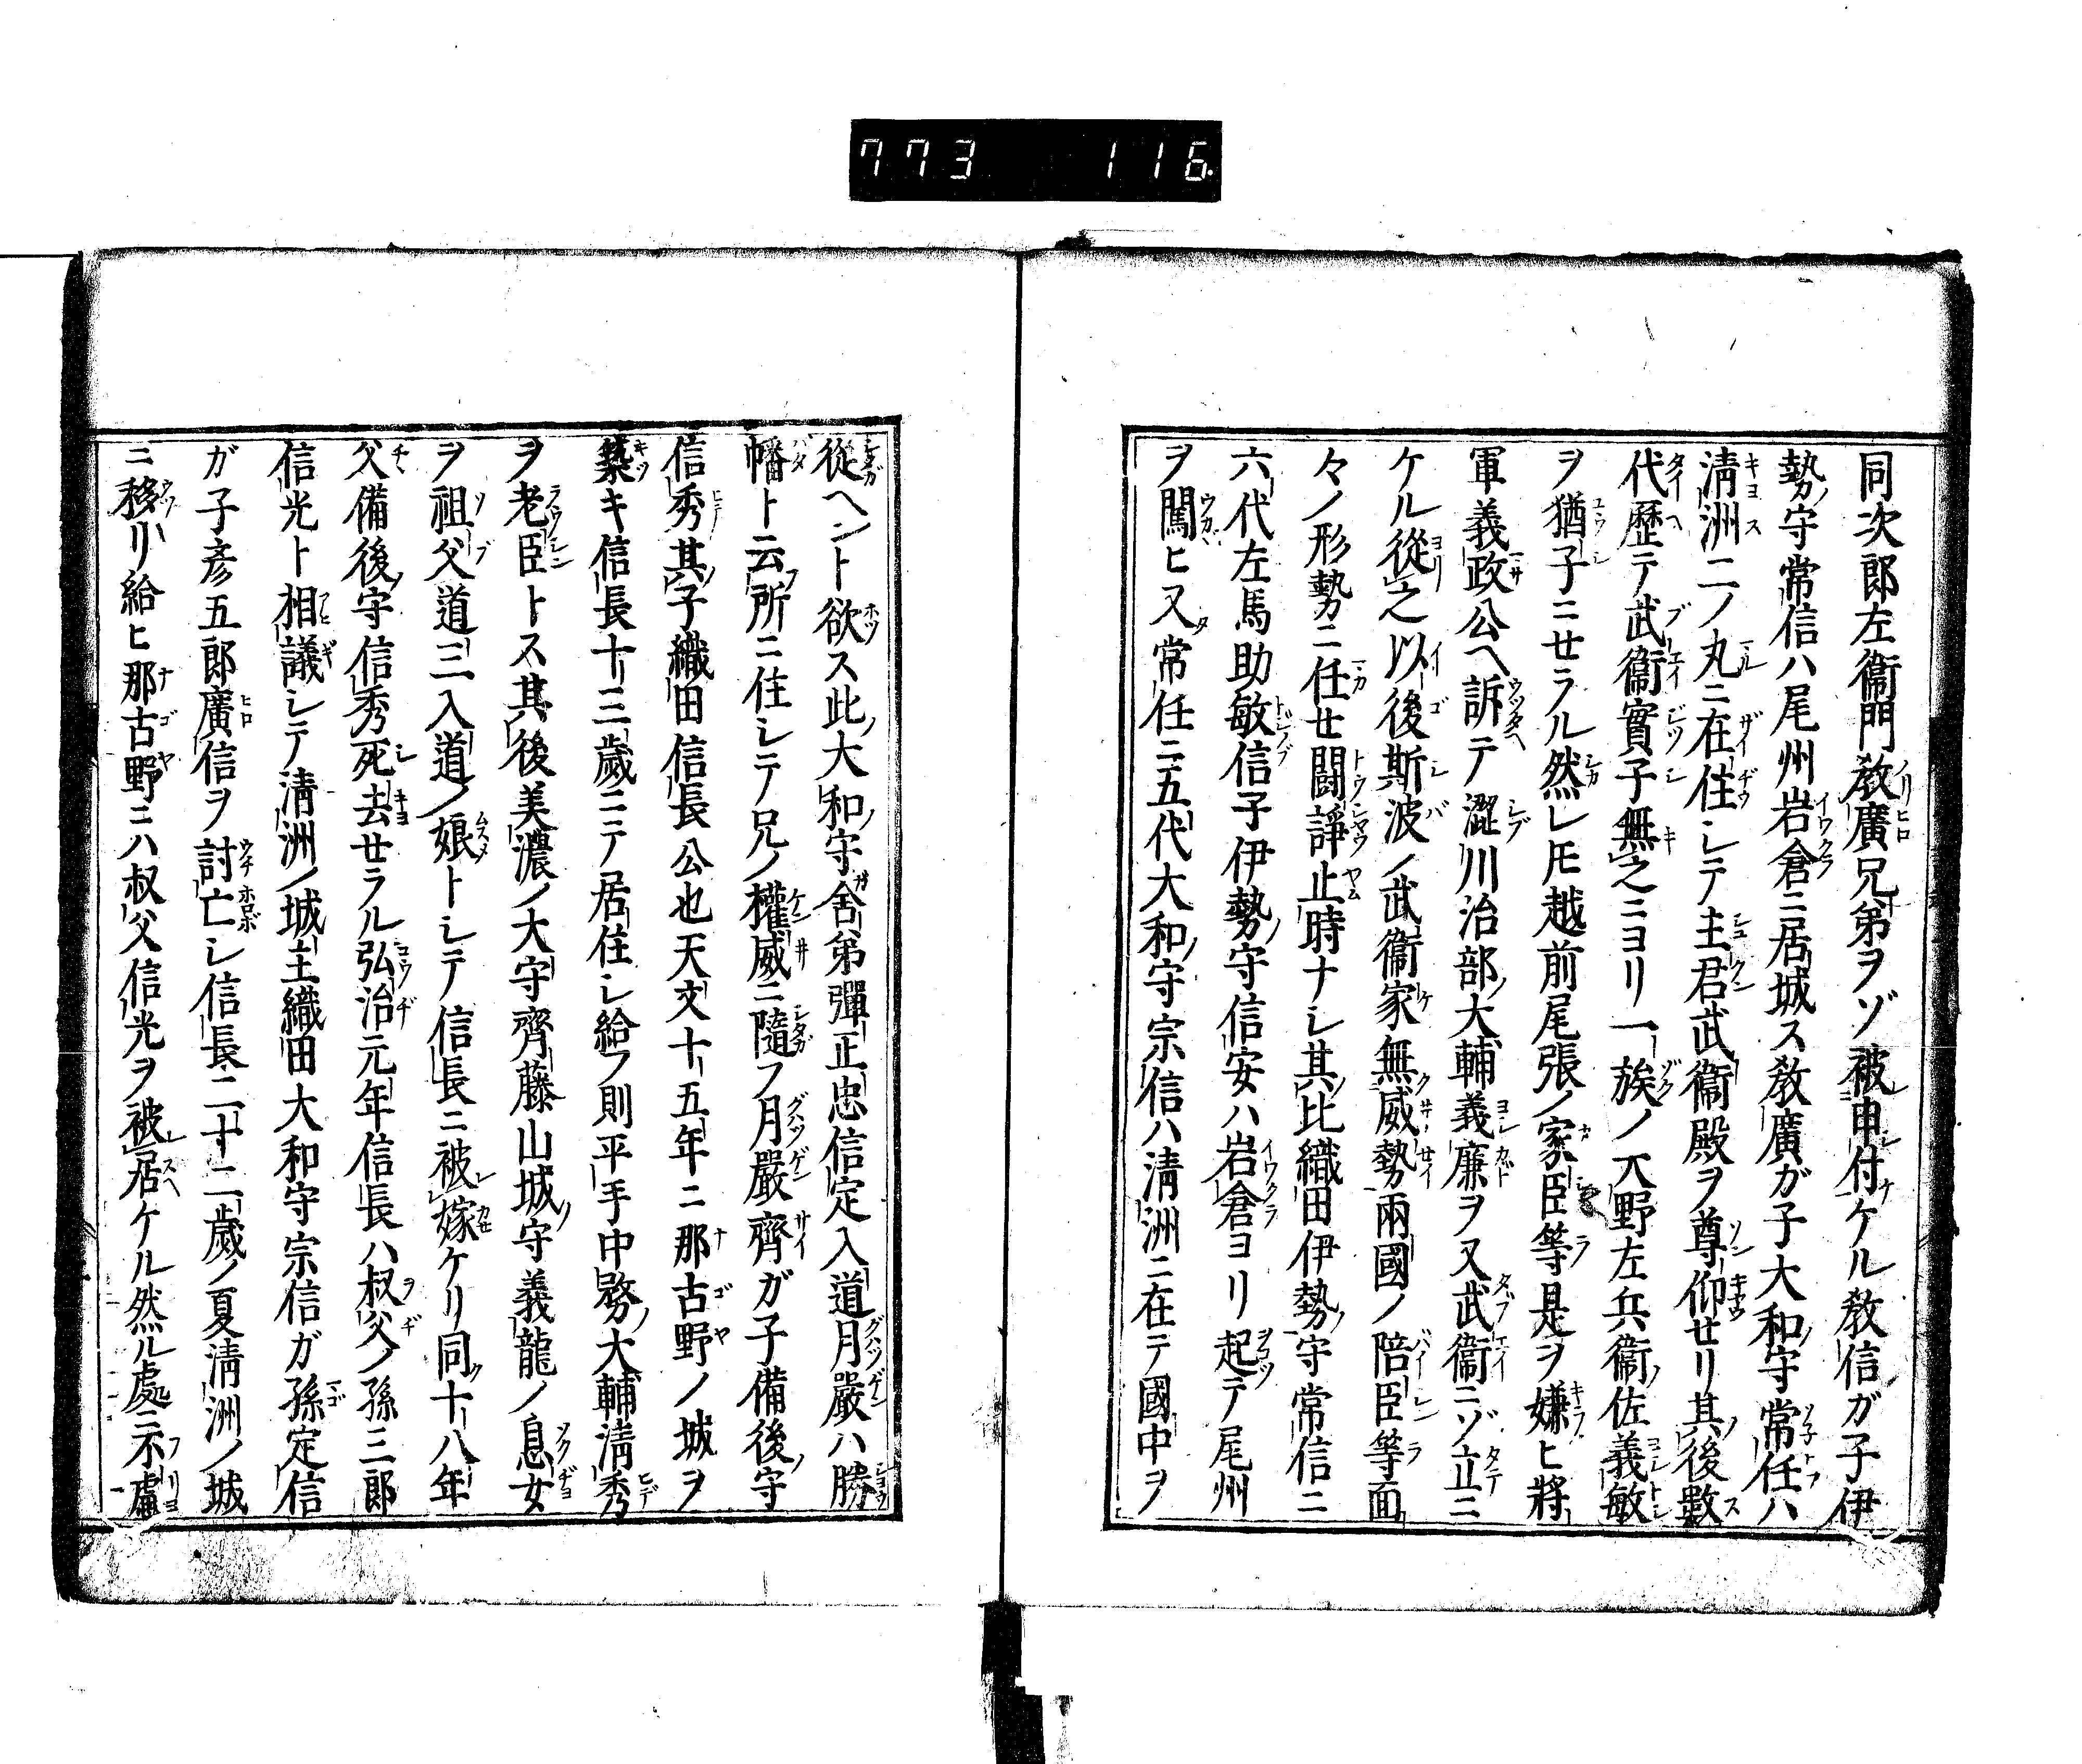 773 116
同次郎左衞門教廣兄弟ヲゾ被申付ケル教信ガ子伊
勢ノ守常信ハ尾州岩倉ニ居城ス教廣ガ子大和ノ守常任ハ
清洲二ノ丸ニ在住シテ主君武衞殿ヲ尊仰セリ其ノ後數
代歴テ武衞實子無之ニヨリ一族ノ大野左兵衞ノ佐義敏
ヲ猶子ニせラル然レ𪜈越前尾張ノ家臣等是ヲ嫌ヒ將
軍義政公ヘ訴テ澁川治部ノ大輔義廉ヲ又武衞ニゾ立ニ
ケル從之以後斯波ノ武衞家無威勢兩國ノ陪臣等面
々ノ形勢ニ任せ闘諍止時ナシ其ノ比織田伊勢ノ守常信ニ
六代左馬助敏信子伊勢ノ守信安ハ岩倉ヨリ起テ尾州
ヲ闖ヒ又常任ニ五代大和ノ守宗信ハ清洲ニ在テ國中ヲ
從ヘント欲ス此ノ大和ノ守ガ舍弟彈正忠信定入道月嚴ハ勝
幡ト云フ所ニ住シテ兄ノ權威ニ隨フ月嚴齊ガ子備後ノ守
信秀其ノ子織田信長公也天文十五年ニ那古野ノ城ヲ
築キ信長十三歲ニテ居住シ給フ則平手中務ノ大輔清秀
ヲ老臣トス其後美濃ノ大守齊藤山城ノ守義龍ノ息女
ヲ祖父道三入道ノ娘トシテ信長ニ被嫁ケリ同ク十八年
父備後ノ守信秀死去せラル弘治元年信長ハ叔父ノ孫三郎
信光ト相議シテ清洲ノ城主織田大和守宗信ガ孫定信
ガ子彦五郎廣信ヲ討亡シ信長二十二歲ノ夏清洲ノ城
ニ移リ給ヒ那古野ニハ叔父信光ヲ被居ケル然ル處ニ不慮